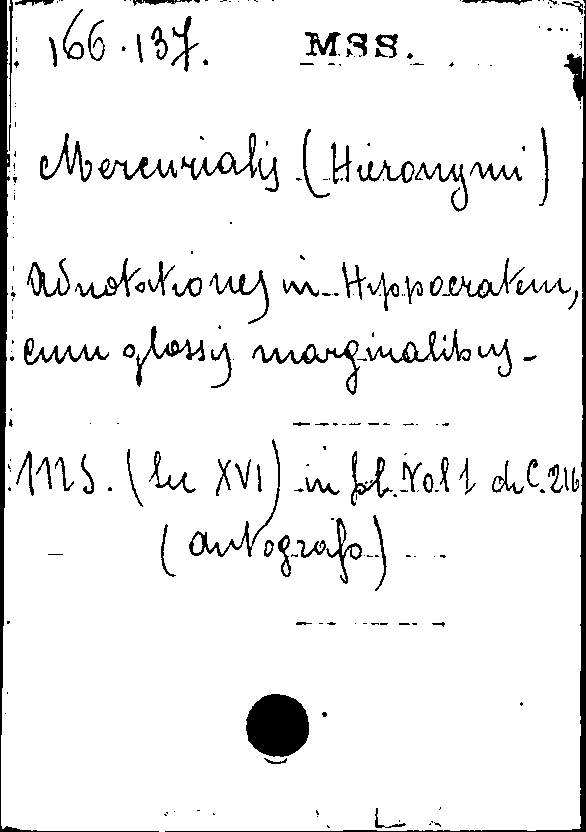 166.137. MSS.
Mercurialis (Hieronymi)
Adnotationes in Hyppocratem,
cum glossis marginalibus -
MS. (Sec XVI) in fol. Vol 1 di C. 216
(autografo)